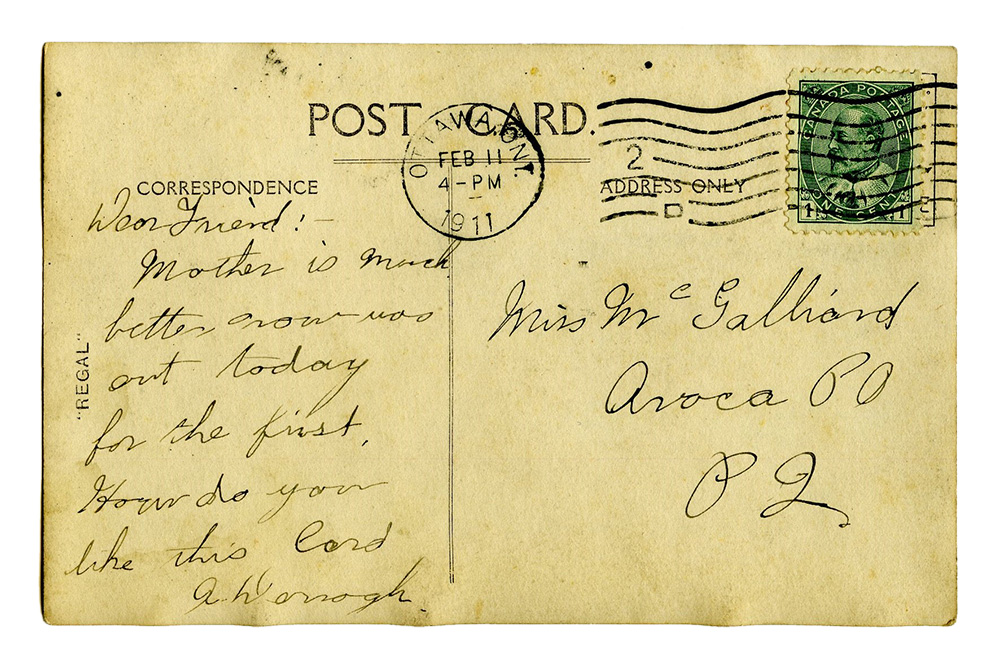 POST CARD.
OTTAWA, ONT.
FEB 11
4-PM
1911
2
D
CANADA POSTAGE
1 ONE CENT 1
CORRESPONDENCE
ADDRESS ONLY
"REGAL"
Dear Friend:-
Mother is much
better now was
out today
for the first.
How do you
like this Card
Miss McGalliard
Avoca P O
P Q